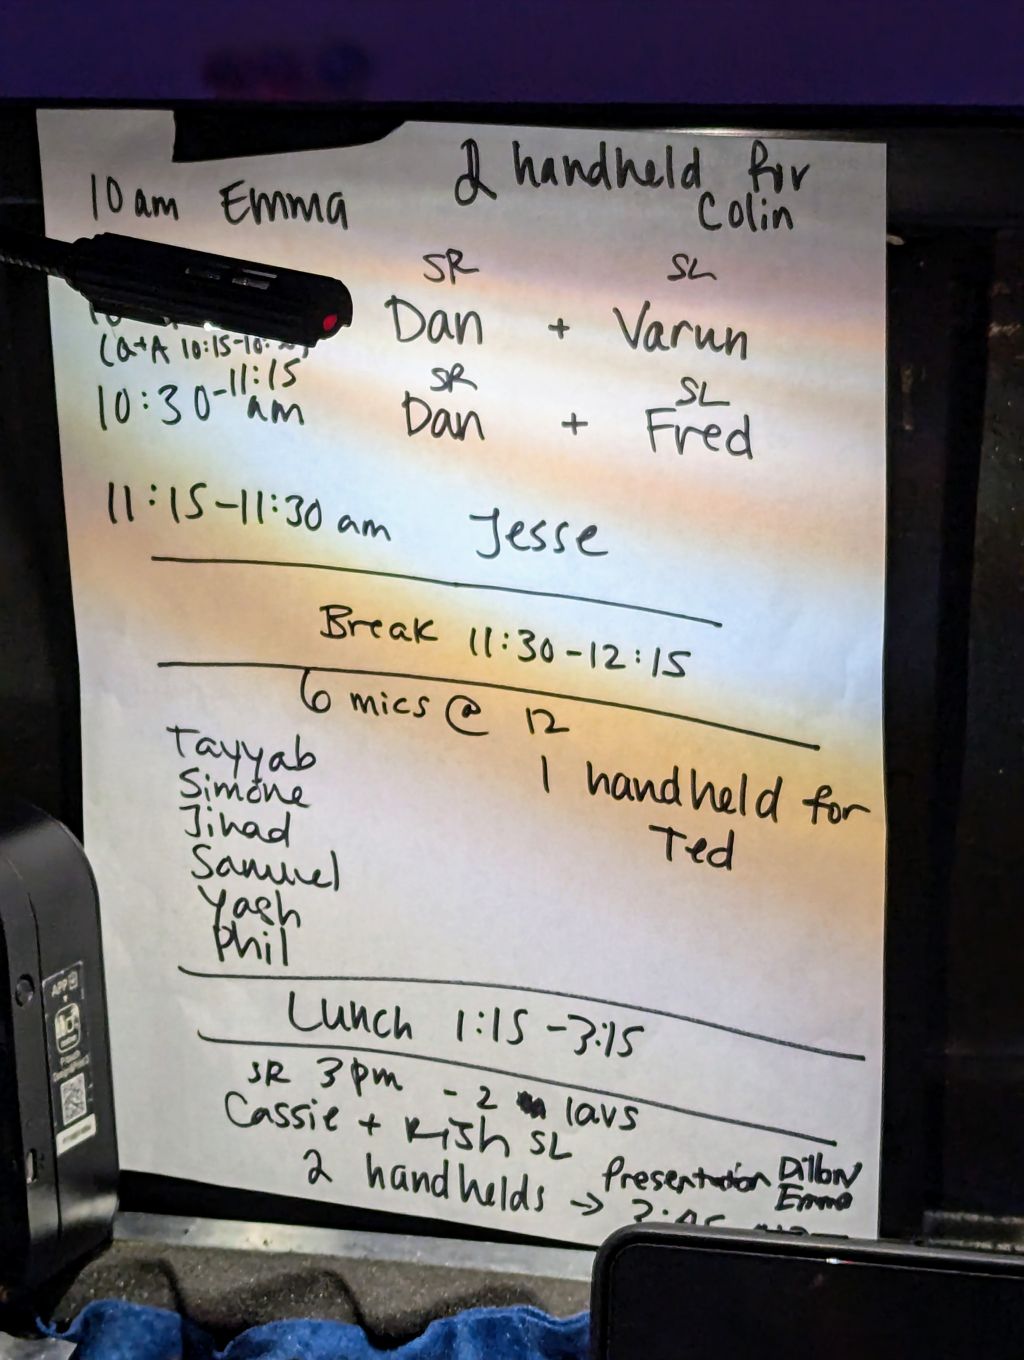 2 handheld for
Colin
10 am Emma
SR SL
Dan + Varun
(Q+A 10:15-
SR SL
10:30-11:15 am Dan + Fred
11:15-11:30 am Jesse
Break 11:30-12:15
6 mics @ 12
Tayyab
1 handheld for
Ted
Simone
Jihad
Samuel
Yash
Phil
Lunch 1:15-3:15
SR 3pm - 2 lavs
Cassie + Krish SL
2 handhelds → Presentation Dillon
Emma
APP